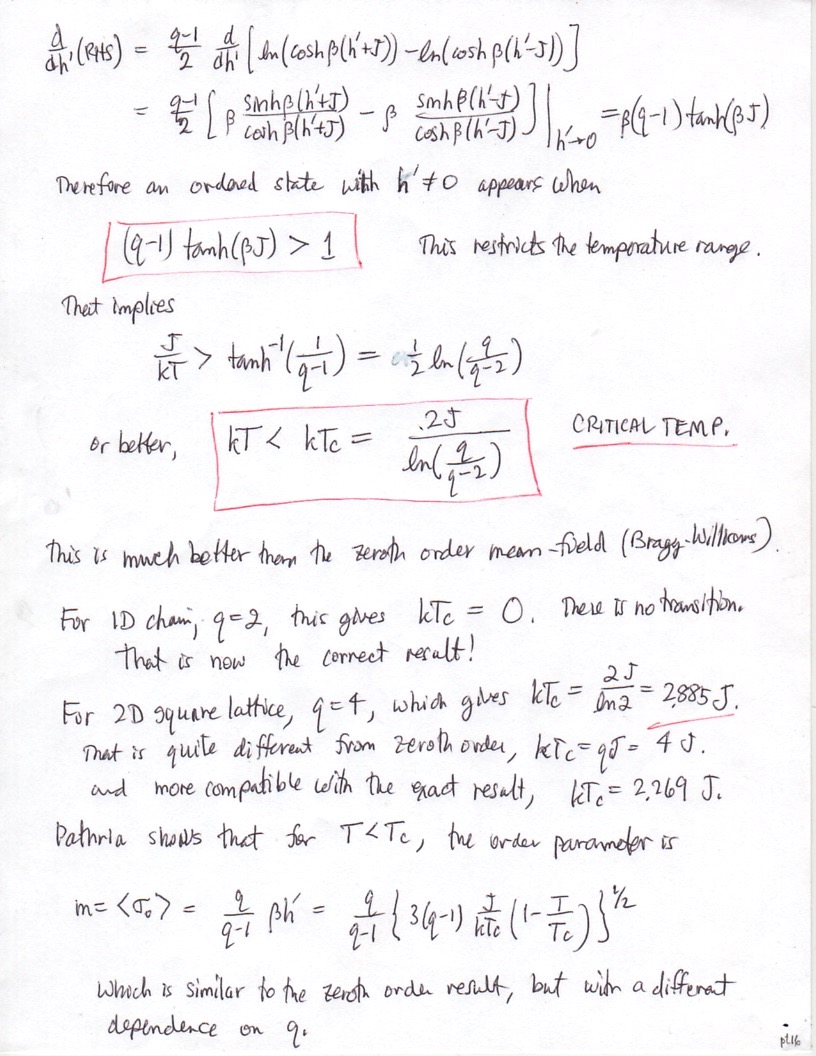 d/dh' (RHS) = (q-1)/2 d/dh' [ln(cosh β(h'+J)) - ln(cosh β(h'-J))]
= (q-1)/2 [β sinhβ(h'+J)/coshβ(h'+J) - β sinhβ(h'-J)/coshβ(h'-J)]|h'→0 = β(q-1) tanh(βJ)
Therefore an ordered state with h' ≠ 0 appears when
(q-1) tanh(βJ) > 1 This restricts the temperature range.
That implies
J/kT > tanh⁻¹(1/(q-1)) = 1/2 ln(q/(q-2))
or better, kT < kTc = 2J/ln(q/(q-2)) CRITICAL TEMP.
This is much better than the zeroth order mean-field (Bragg-Williams).
For 1D chain, q=2, this gives kTc = 0. There is no transition.
That is now the correct result!
For 2D square lattice, q=4, which gives kTc = 2J/ln2 = 2.885 J.
That is quite different from zeroth order, kTc = qJ = 4 J.
and more compatible with the exact result, kTc = 2.269 J.
Pathria shows that for T<Tc, the order parameter is
m = <σ₀> = q/(q-1) βh' = q/(q-1) {3(q-1) J/kTc (1 - T/Tc)}^1/2
which is similar to the zeroth order result, but with a different
dependence on q.